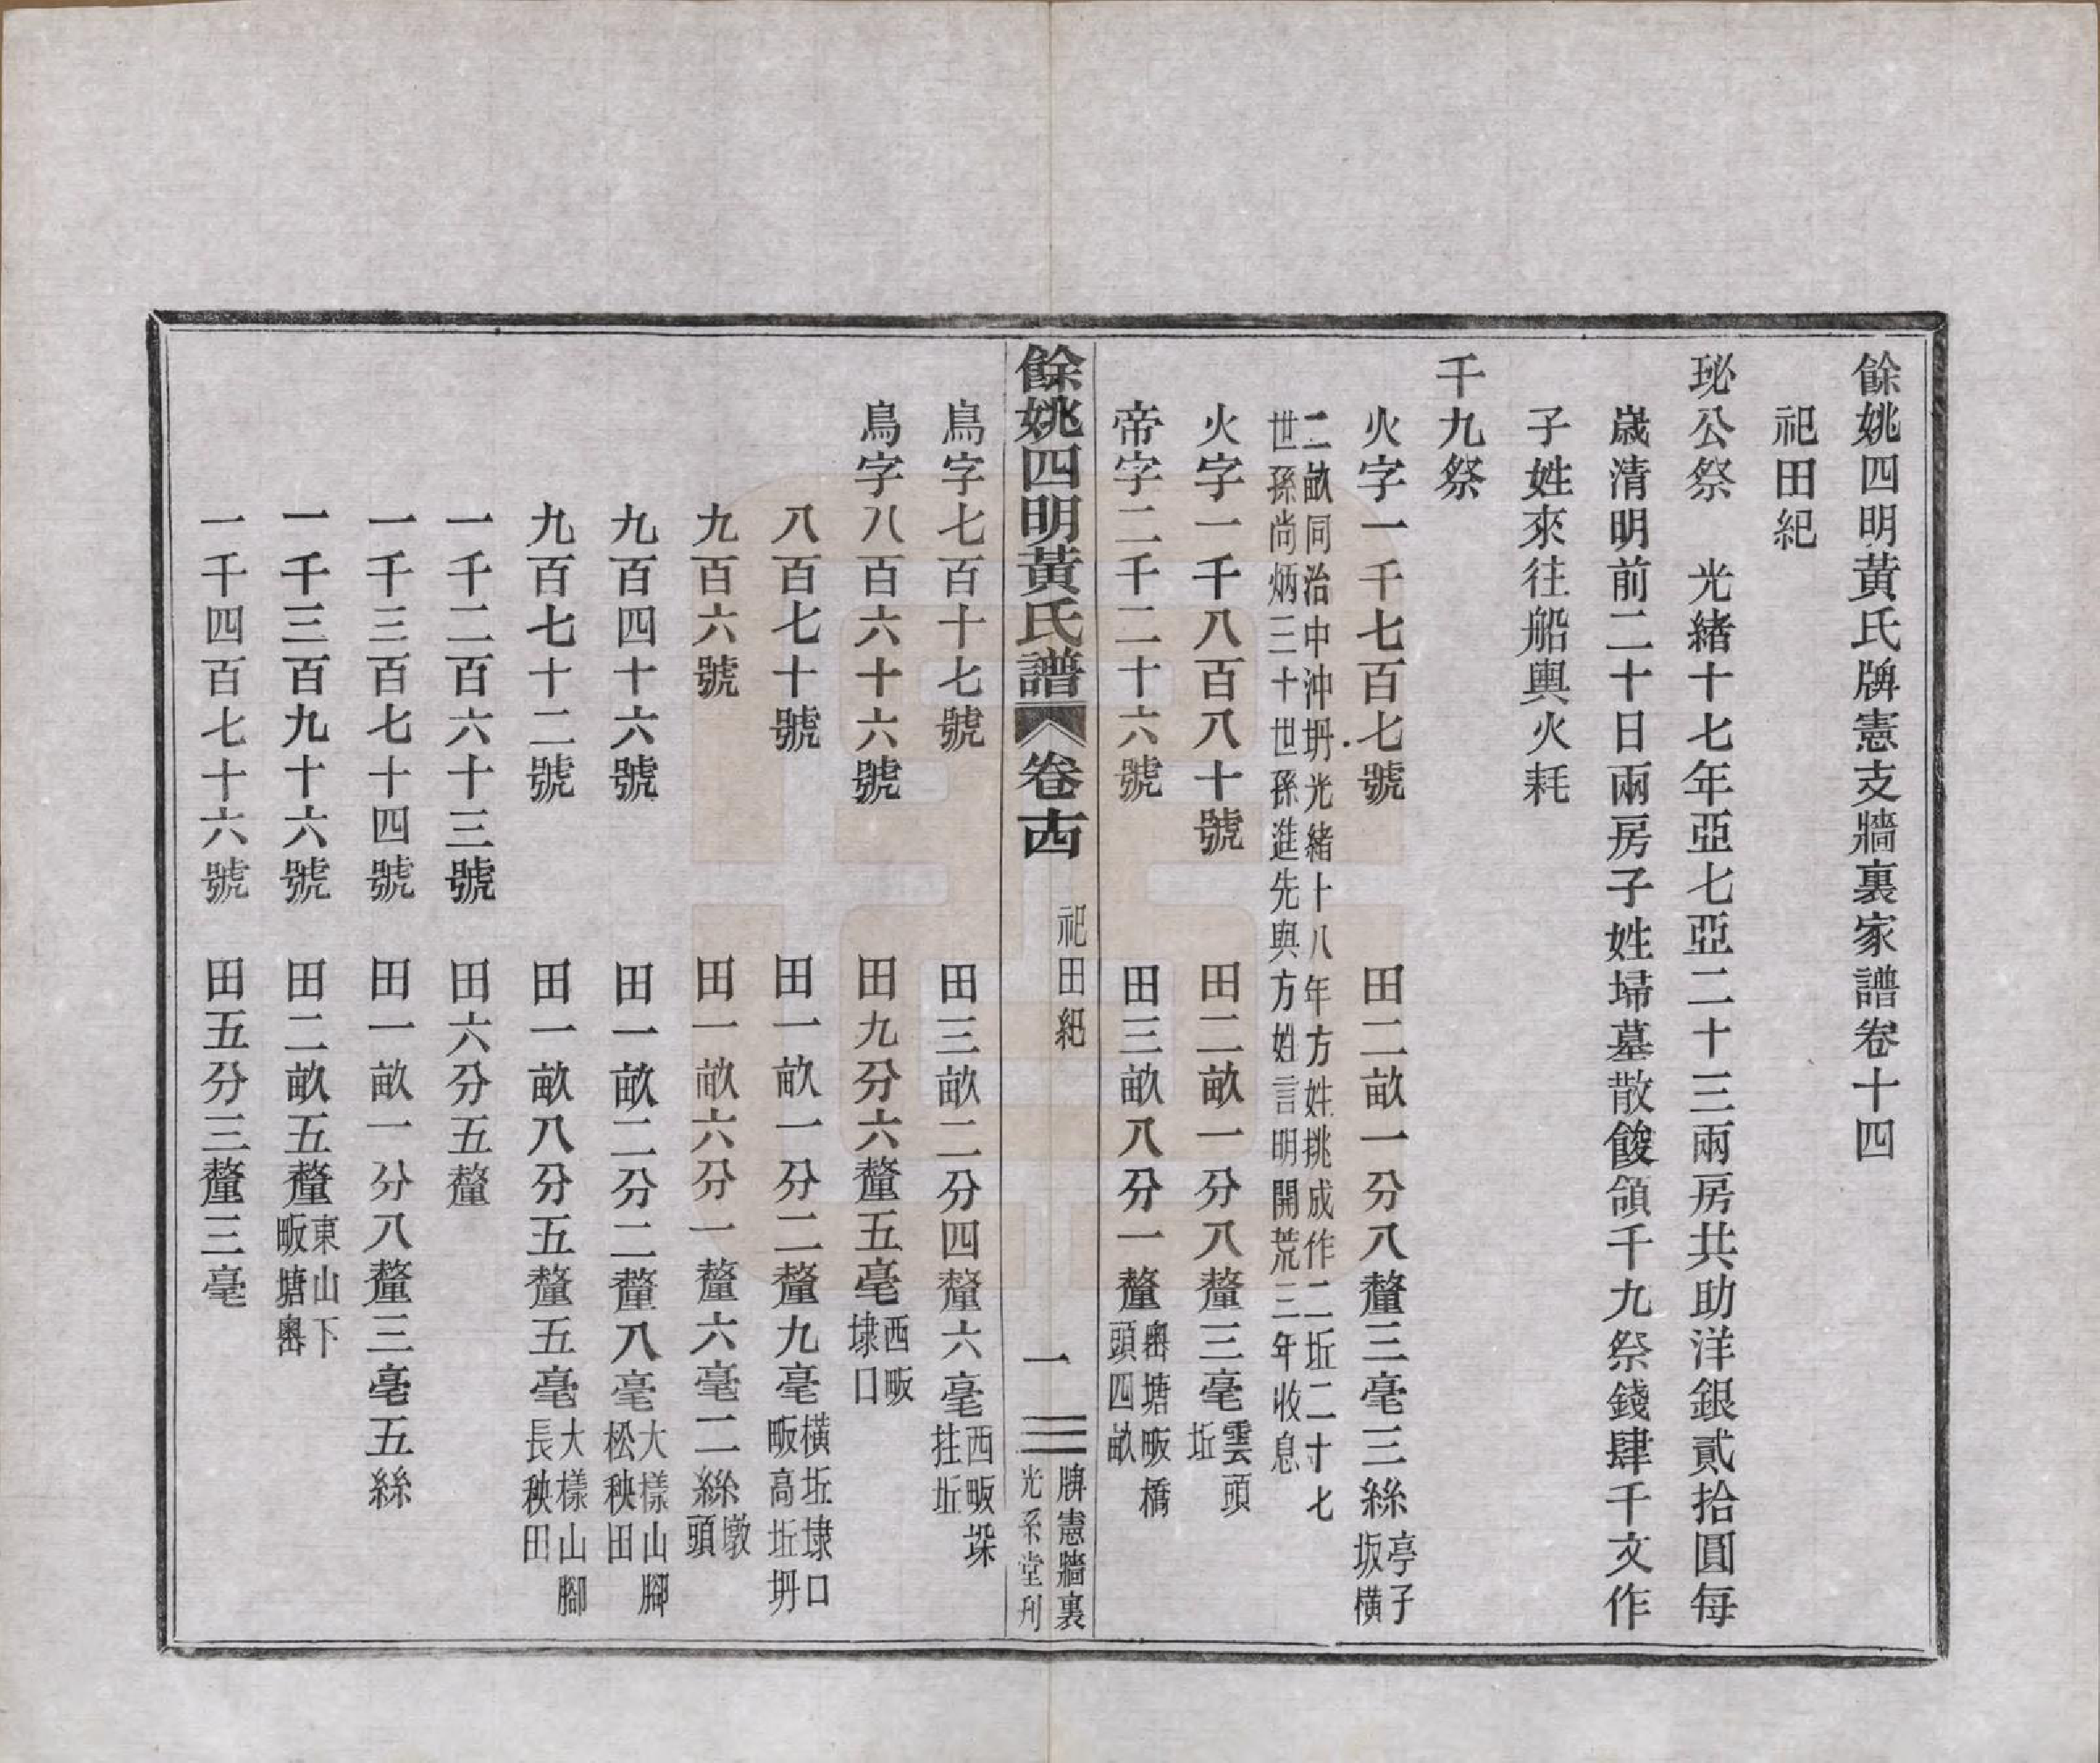 餘姚四明黃氏牌憲支牆裏家譜卷十四
祀田紀
珌公祭　光緒十七年亞七亞二十三兩房共助洋銀貳拾圓每
歲清明前二十日兩房子姓埽墓散餕領千九祭錢肆千文作
子姓來往船輿火耗
千九祭
火字一千七百七號　田二畝一分八釐三毫三絲亭子
坂橫
二畝同治中沖坍光緒十八年方姓挑成作二坵二十七
世孫尚炳三十世孫進先與方姓言明開荒三年收息
火字一千八百八十號　田二畝一分八釐三毫雲頭
坵
帝字二千二十六號　田三畝八分一釐嶴塘畈橋
頭四畝
餘姚四明黃氏譜　卷十四　祀田紀　一　牌憲牆裏
光系堂刋
鳥字七百十七號　田三畝二分四釐六毫西畈垛
拄坵
鳥字八百六十六號　田九分六釐五毫西畈
埭口
八百七十號　田一畝一分二釐九毫橫坵埭口
畈高坵坍
九百六號　田一畝六分一釐六毫二絲墩
頭
九百四十六號　田一畝二分二釐八毫大樣山腳
松秧田
九百七十二號　田一畝八分五釐五毫大樣山腳
長秧田
一千二百六十三號　田六分五釐
一千三百七十四號　田一畝一分八釐三毫五絲
一千三百九十六號　田二畝五釐東山下
畈塘嶴
一千四百七十六號　田五分三釐三毫